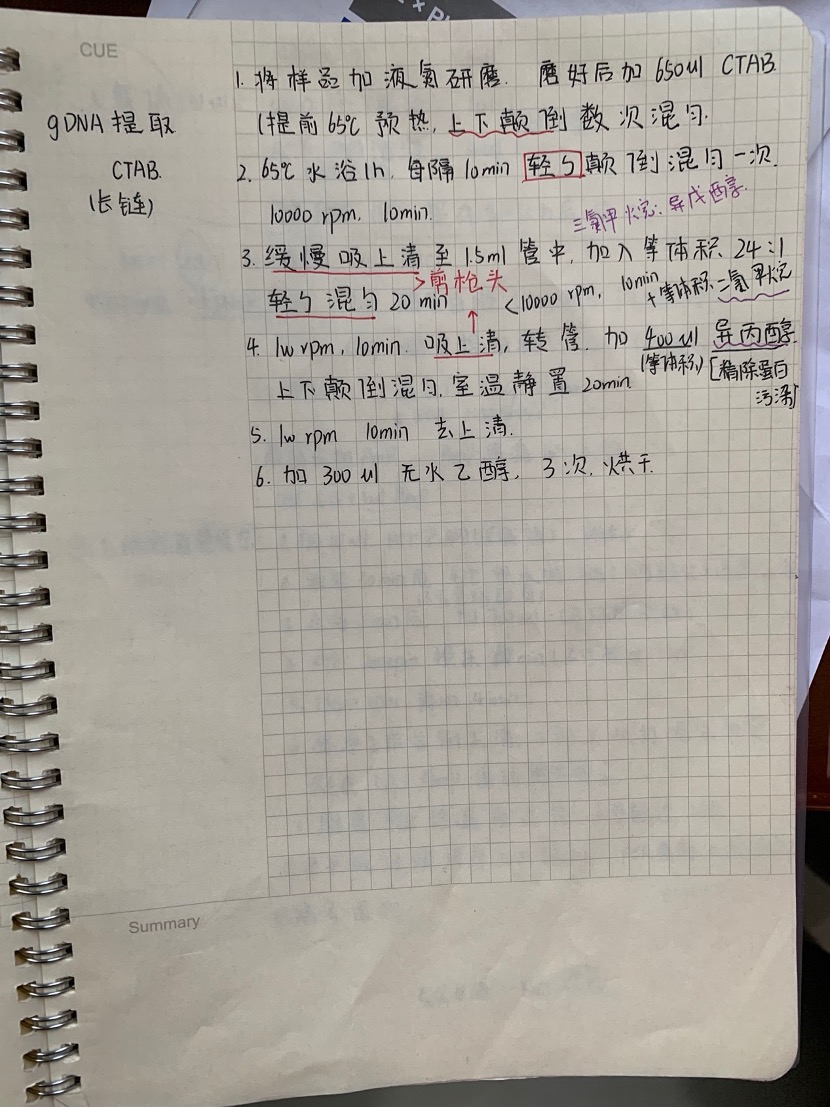 CUE
gDNA提取
CTAB.
(长链)
1. 将样品加液氮研磨. 磨好后加650ul CTAB.
(提前65℃预热, 上下颠倒数次混匀.
2. 65℃水浴1h, 每隔10min 轻匀颠倒混匀一次.
10000 rpm, 10min.
三氯甲烷:异戊醇.
3. 缓慢吸上清至1.5ml管中, 加入等体积 24:1
>剪枪头
轻匀混匀20min <10000 rpm, 10min
+等体积三氯甲烷
4. 1w rpm, 10min. 吸上清, 转管. 加400ul 异丙醇
(等体积)
上下颠倒混匀. 室温静置20min.
[精除蛋白
污染]
5. 1w rpm 10min 去上清.
6. 加300ul 无水乙醇, 3次, 烘干.
Summary